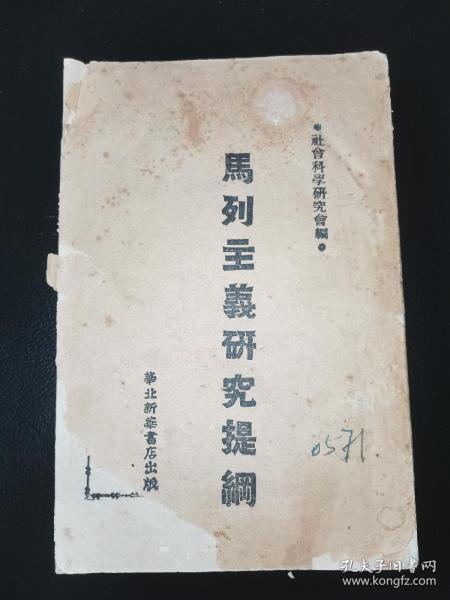 ●社會科學研究會編●
馬列主義研究提綱
華北新華書店出版
0571.
孔夫子旧书网
www.kongfz.com